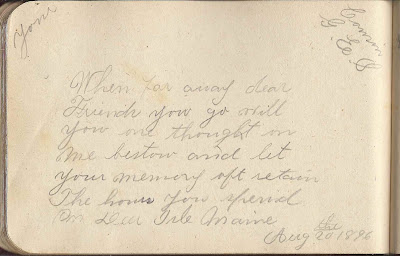 Your
Cousin
G. E. S
When far away dear
Friend you go will
you one thought on
me bestow and let
your memory oft retain
The hours you spend
On Deer Isle Maine
Aug 20 1896